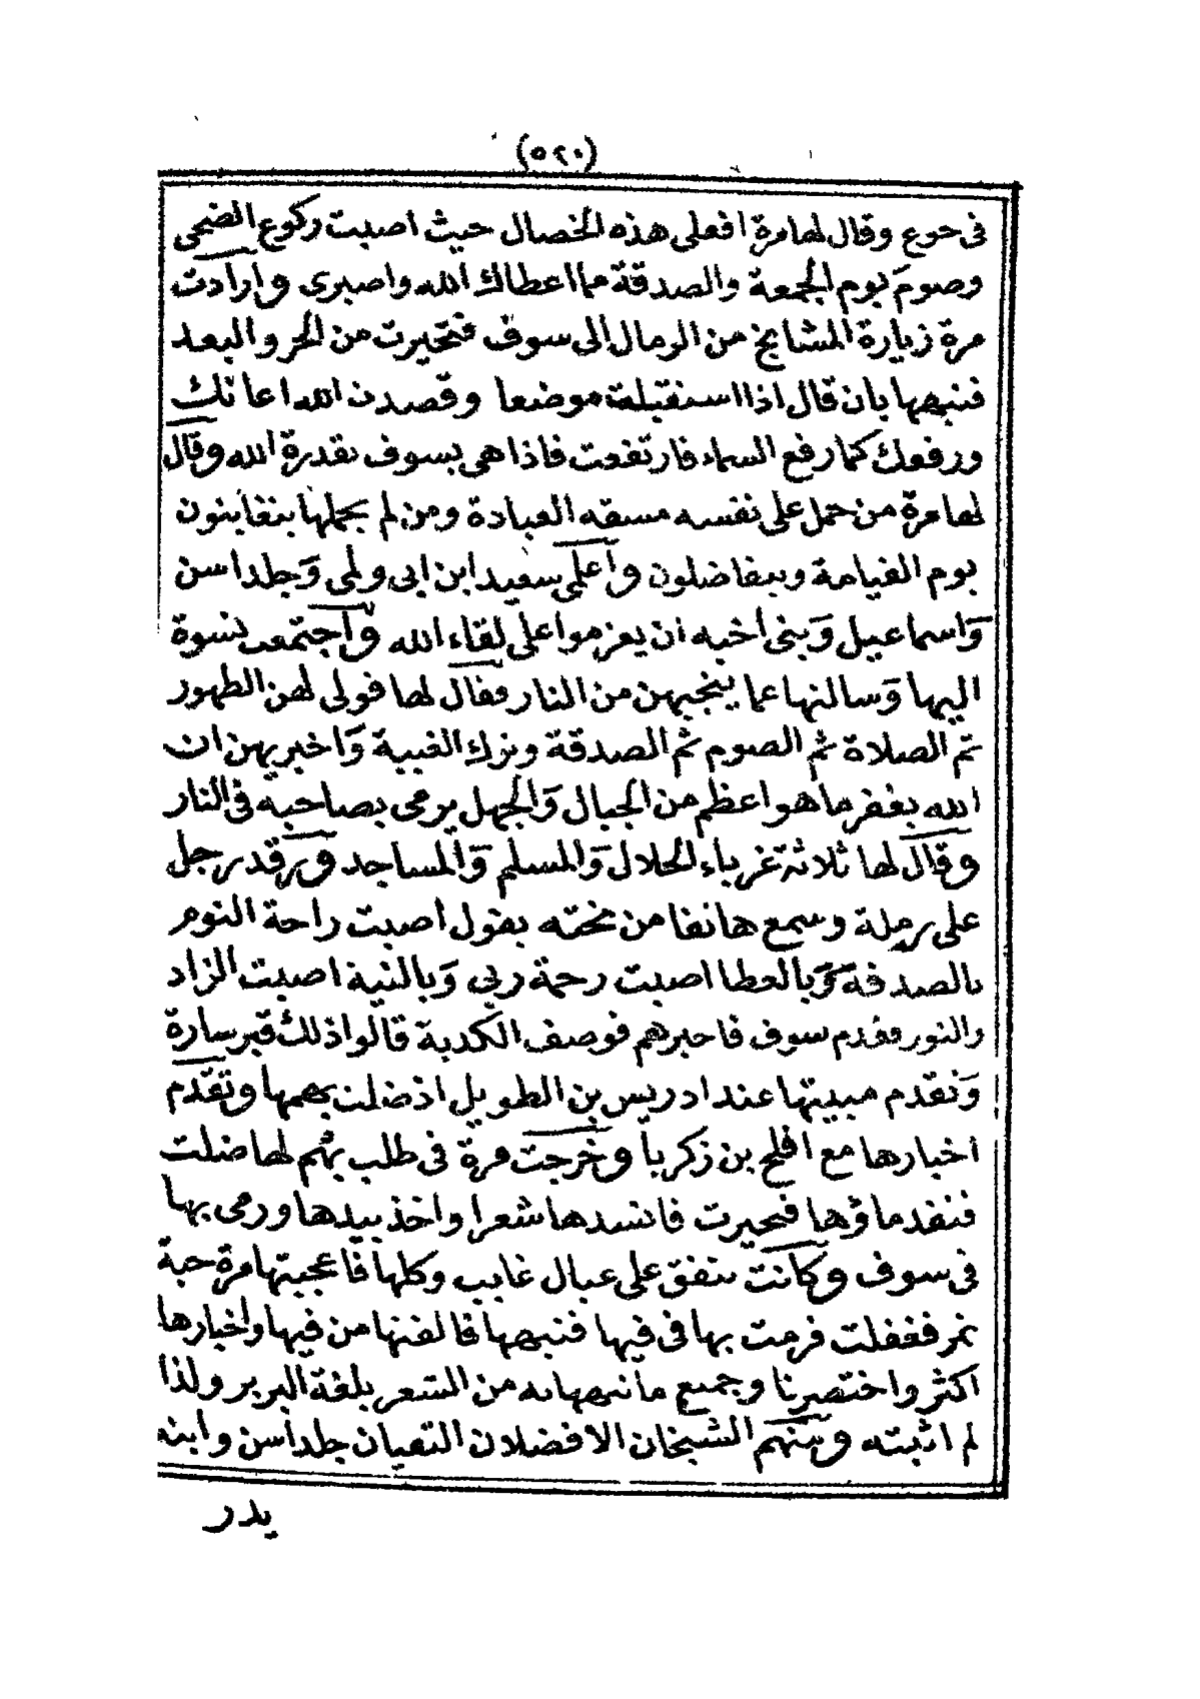 (٥٢٠)
فى جوع وقال لها مرة افعلى هذه الخصال حيث اصبت ركوع الضحى
وصوم يوم الجمعة والصدقة مما اعطاك الله واصبرى وارادت
مرة زيارة المشايخ من الرمال الى سوف فتحيرت من الحر والبعد
فنبهها بان قال اذا استقبلت موضعا وقصدت الله اعانك
ورفعك كما رفع السماء فارتفعت فاذا هى بسوف بقدرة الله وقال
لها مرة من حمل على نفسه مشقة العبادة ومن لم يحملها يتغابنون
يوم القيامة ويتفاضلون واعلمى سعيد ابن ابى ولمى وجلداسن
واسماعيل وبنى اخيه ان يعزموا على لقاء الله واجتمعت نسوة
اليها وسالنها عما ينجيهن من النار فقال لها قولى لهن الطهور
ثم الصلاة ثم الصوم ثم الصدقة وترك الغيبة واخبريهن ان
الله يغفر ما هو اعظم من الجبال والجهل يرمى بصاحبه فى النار
وقال لها ثلاثة غرباء الحلال والمسلم والمساجد ورقد رجل
على رملة وسمع هاتفا من تحته يقول اصبت راحة النوم
بالصدقة وبالعطا اصبت رحمة ربى وبالنية اصبت الزاد
والنور فقدم سوف فاخبرهم فوصف الكدية قالوا ذلك قبر سارة
وتقدم مبيتها عند ادريس بن الطويل اذ ضلت بهمها وتقدم
اخبارها مع افلح بن زكريا وخرجت مرة فى طلب بهم لها ضلت
فنفد ماؤها فتحيرت فانشدها شعرا واخذ بيدها ورمى بها
فى سوف وكانت تنفق على عيال غايب وكلها فاعجبتها مرة حبة
تمر فغفلت فرمت بها فى فيها فنبهها فالفتها من فيها واخبارها
اكثر واختصرنا وجميع ما نبهها به من الشعر بلغة البربر ولذا
لم اثبته ومنهم الشيخان الافضلان التقيان جلداسن وابنه
يدر